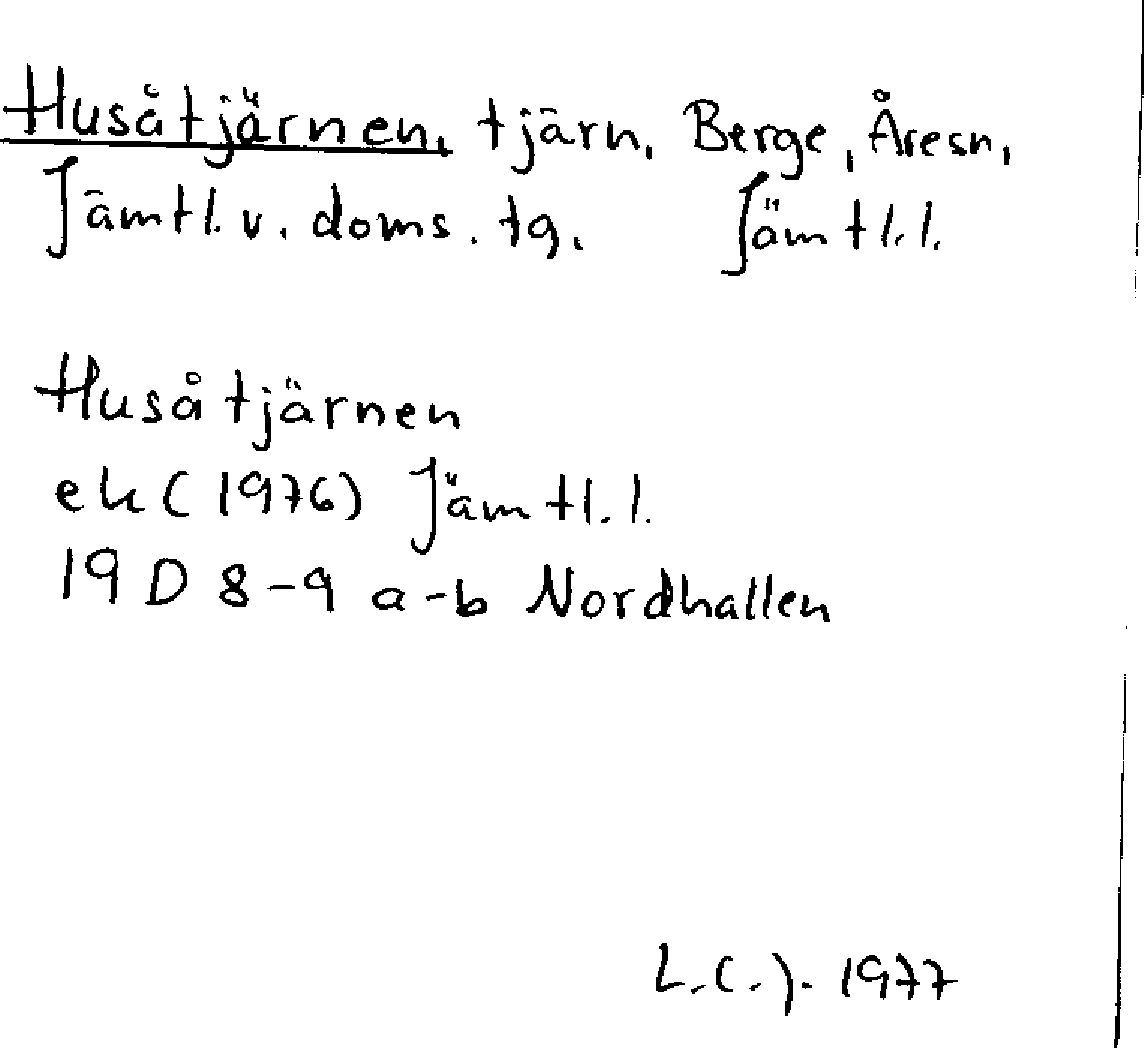 Husåtjärnen, tjärn, Berge, Åresn,
Jämtl. v. doms. tg. Jämtl.l.
Husåtjärnen
ek (1976) Jämtl.l.
19 D 8-9 a-b Nordhallen
L.C.J. 1977